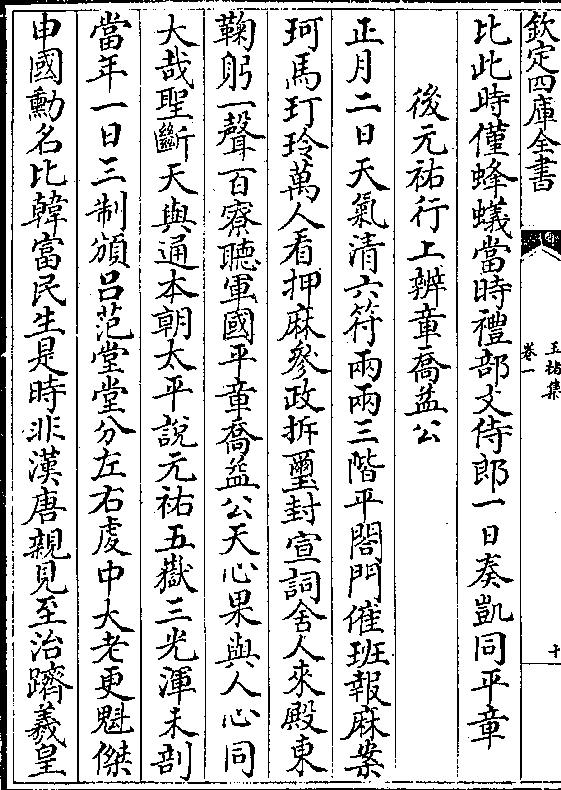 欽定四庫全書
玉楮集
卷一
十
比此時僅蜂蟻當時禮部文侍郎一日奏凱同平章
後元祐行上辨章喬益公
正月二日天氣清六符兩兩三階平閤門催班報麻案
珂馬玎玲萬人看押麻參政拆璽封宣詞舍人來殿東
鞠躬一聲百寮聽軍國平章喬益公天心果與人心同
大哉聖斷天與通本朝太平說元祐五嶽三光渾未剖
當年一日三制頒呂范堂堂分左右䖍中大老更魁傑
申國勳名比韓富民生是時非漢唐親見至治躋羲皇